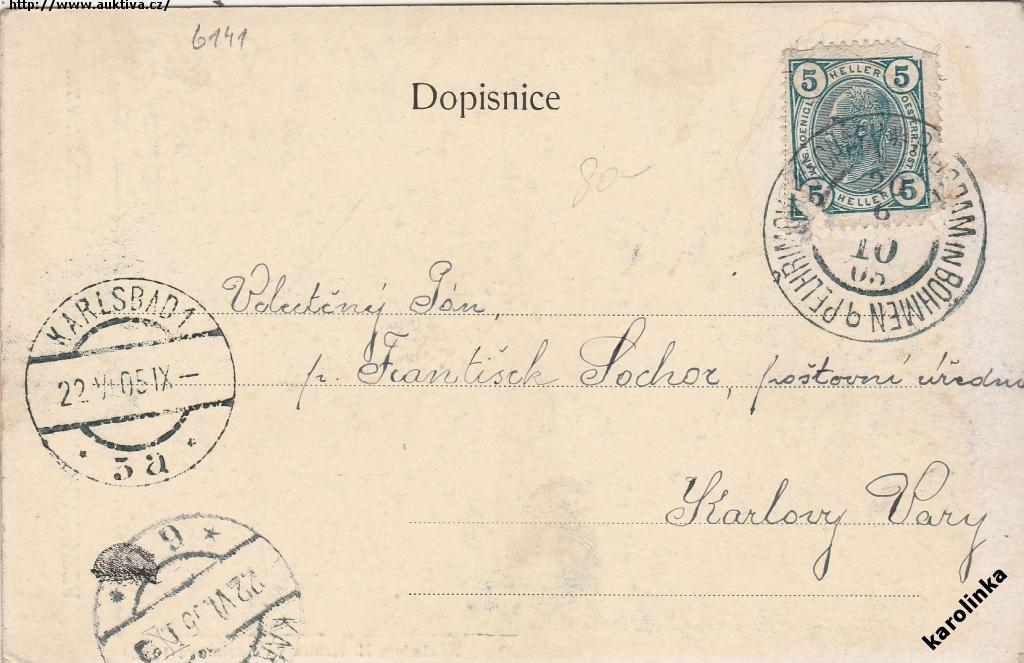 http://www.auktiva.cz/
6141
Dopisnice
5 HELLER 5
KAIS. KOENIGL. OESTERR. POST
5 HELLER 5
IN BÖHMEN PELHŘIMOV
6
10
05
80
KARLSBAD 1
22 VI 05 IX –
* 5a *
Vzlutčný Pán,
p. František Sochor, poštovní úředn
Karlovy Vary
* 9 *
22. VI. 05 IX
karolinka